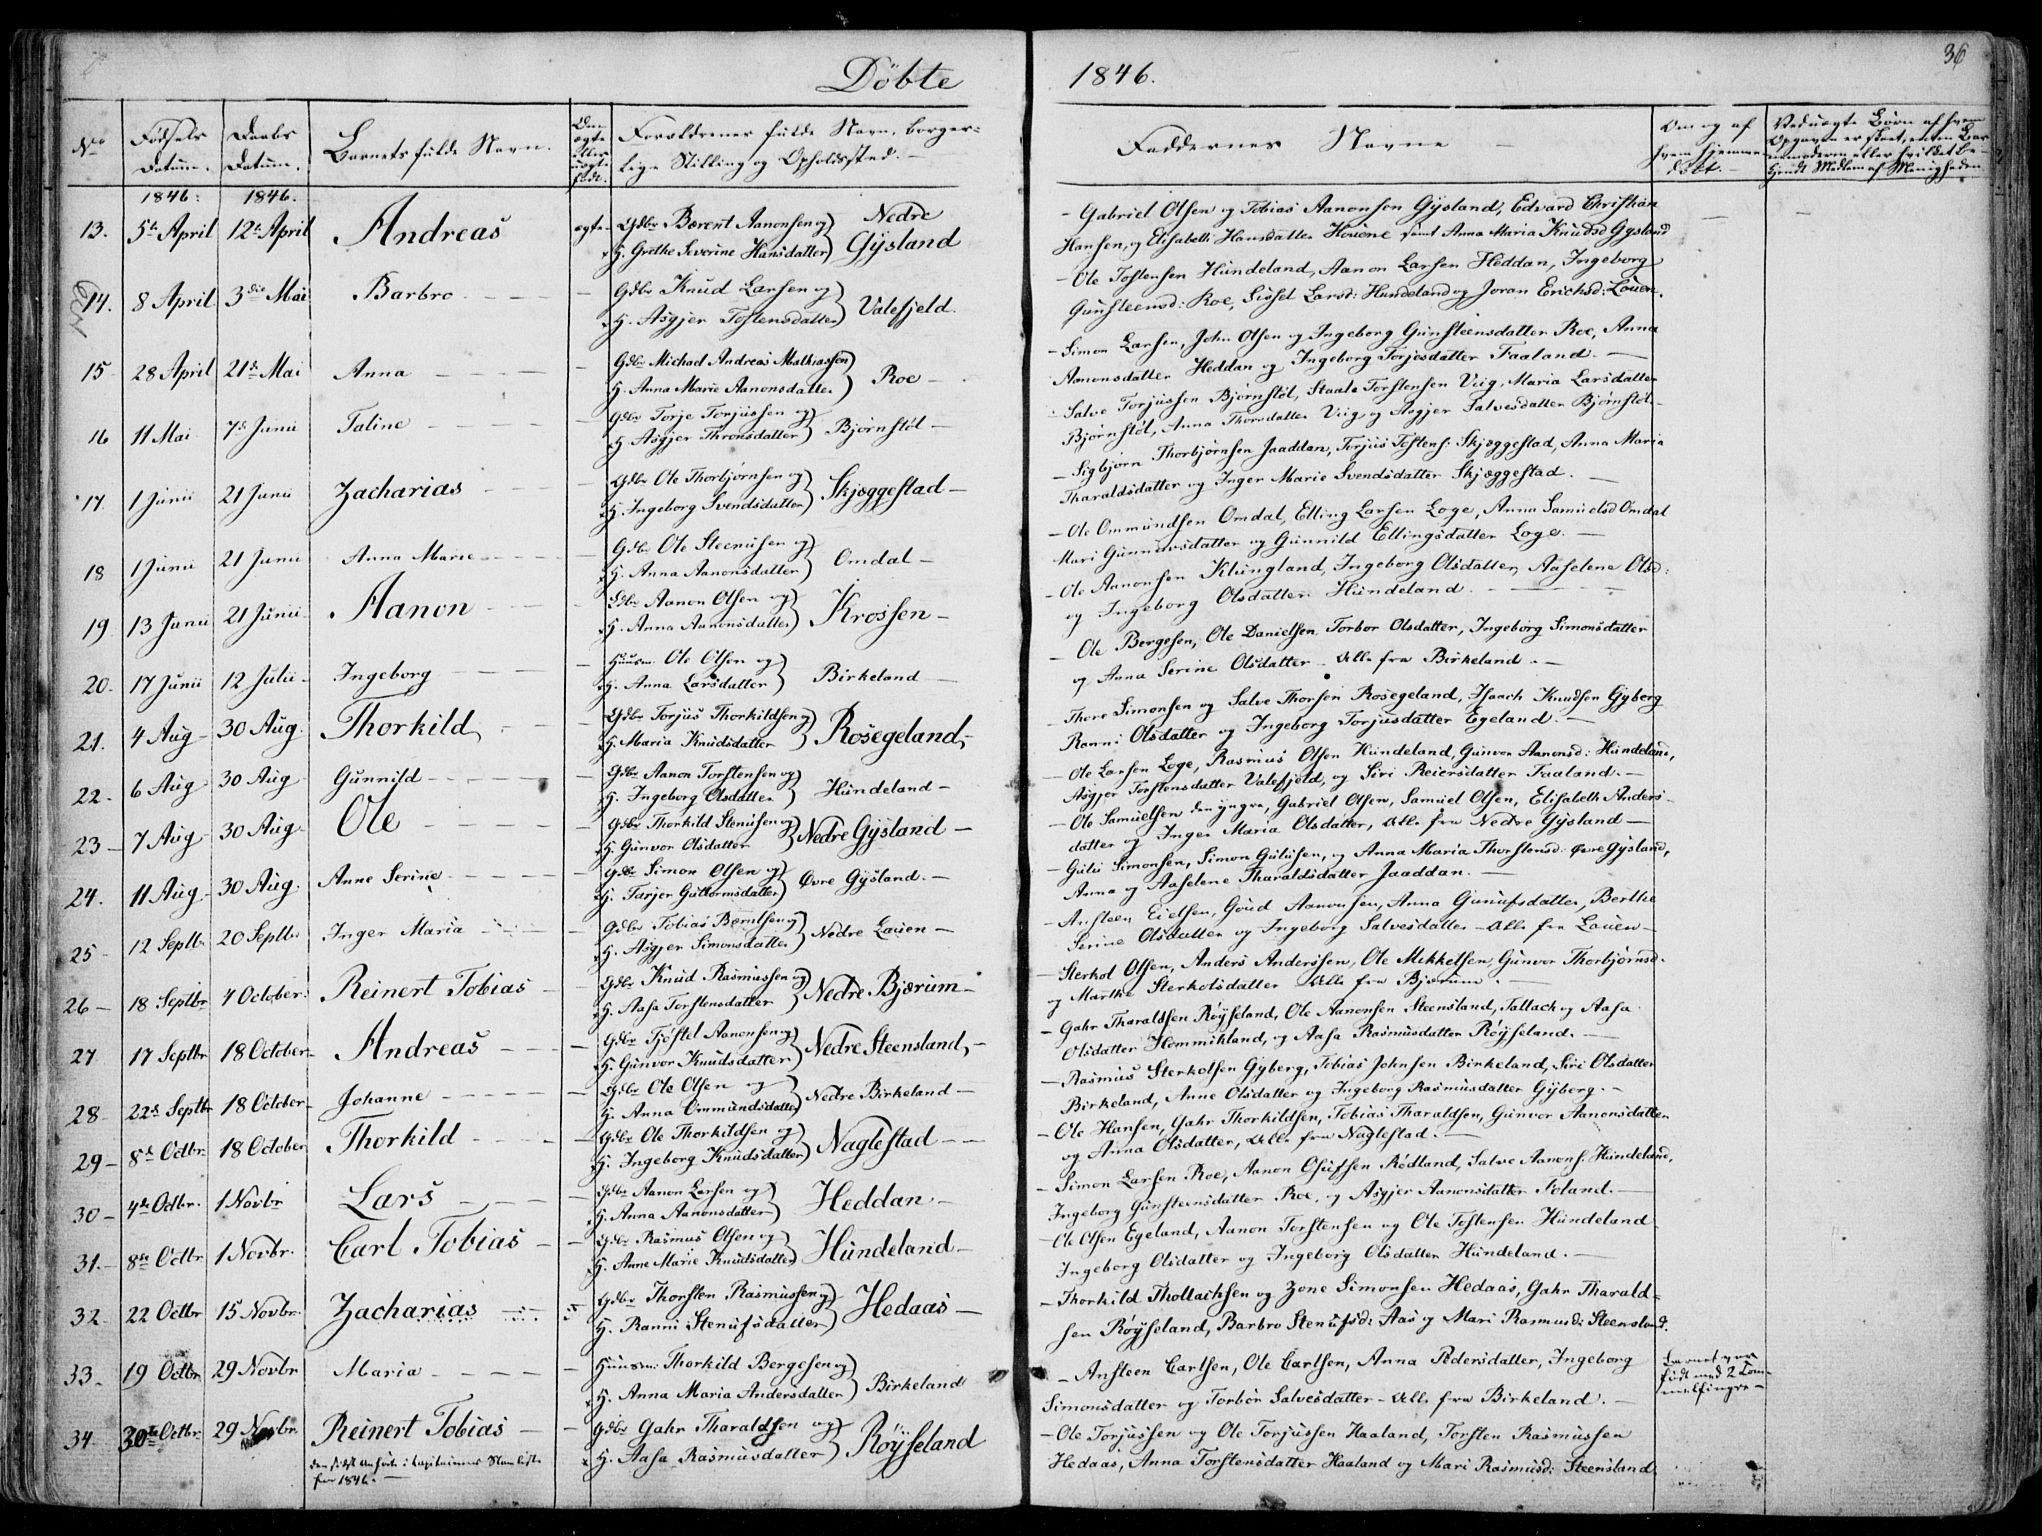 Döbte
1846.
36
No
Fødsels Datum.
Daabs Datum.
Barnets fulde Navn.
Om ægte eller uægte født.
Forældrenes fulde Navn, borger-
lige Stilling og Opholdssted. —
Faddernes Navne —
Om og af hvem hjemme-døbt. —
1846.
1846.
13. 5te April 12te April Andreas ægte — Gdbr Bærent Aanonsen og
H. Grethe Severine Hansdatter) Nedre Gysland
— Gabriel Olsen og Tobias Aanonsen Gysland, Edvard Christian
Hansen, og Elisabeth Hansdatter Houene samt Anna Maria Knudsd Gysland
14. 8 April 3die Mai Barbro — — Gdbr Knud Larsen og
H. Asgjer Tostensdatter) Valefjeld.
— Ole Tostensen Hundeland, Aanon Larsen Heddan, Ingeborg
Gunsteensd: Roe, Sissel Larsd: Hundeland og Joran Erichsd: Louen.
15 28 April 21de Mai Anna — — Gdbr Michael Andreas Mathiassen)
H. Anna Marie Aanonsdatter) Roe —
— Simon Larsen, John Olsen og Ingeborg Gunsteensdatter Roe, Anna
Aanonsdatter Heddan og Ingeborg Torjesdatter Faaland. —
16 11 Mai 7de Junii Taline — — Gdbr Torje Torjussen og
H. Asgjer Thronsdatter) Bjørnstøl —
Salve Torjussen Bjørnstøl, Staale Torstensen Veig, Maria Larsdatter
Bjørnstøl, Anna Thorsdatter Veig og Asgjer Salvesdatter Bjørnstøl.
17. 1 Junii 21 Junii Zacharias — — Gdbr Ole Thorbjørnsen og
H. Ingeborg Svendsdatter) Skjæggestad —
— Sigbjørn Thorbjørnsen Jaaddan, Torjus Tostens: Skjæggestad, Anna Maria
Tharaldsdatter og Inger Marie Svendsdatter Skjæggestad.
18 1 Junii 21 Junii Anna Marie — — Gdbr Ole Steenusen og
H. Anna Aanonsdatter) Omdal —
— Ole Ommundsen Omdal, Elling Larsen Loge, Anna Samuelsd Omdal
Mari Gunnersdatter og Gunnild Ellingsdatter Loge. —
19 13 Junii 21 Junii Aanon — — Gdbr Aanon Olsen og
H. Anna Aanonsdatter) Krossen —
— Ole Aanonsen Klungland, Ingeborg Olsdatter, Aaselene Olsd:
og Ingeborg Olsdatter Hundeland.
20. 17 Junii 12 Julii Ingeborg — — Huusm. Ole Olsen og
H. Anna Larsdatter) Birkeland —
— Ole Bergesen, Ole Danielsen, Torbor Olsdatter, Ingeborg Simonsdatter
og Anna Serine Olsdatter — Alle fra Birkeland. —
21. 4 Aug 30 Aug. Thorkild — — Gdbr Torjus Thorkildsen og
H. Maria Knudsdatter) Rosegeland, —
— Thore Simonsen og Salve Thorsen Rosegeland, Isaach Knudsen Gyberg
Ranni Olsdatter og Ingeborg Torjusdatter Egeland. —
22. 6 Aug 30 Aug Gunnild — — Gdbr Aanon Torstensen og
H. Ingeborg Olsdatter) Hundeland —
— Ole Larsen Loge, Rasmus Olsen Hundeland, Gunvor Aanonsd: Hundeland,
Asgjer Torstensdatter Valefjeld, og Siri Reiersdatter Faaland. —
23 — 7 Aug 30 Aug. Ole — — Gdbr Thorkild Stenusen og
H. Gunvor Olsdatter) Nedre Gysland —
— Ole Samuelsen den yngre, Gabriel Olsen, Samuel Olsen, Elisabeth Anders-
datter og Inger Maria Olsdatter, Alle fra Nedre Gysland —
24. 11 Aug 30 Aug. Anne Serine — — Gdbr Simon Olsen og
H. Tarjer Guttormsdatter) Øvre Gysland. —
Gulu Simonsen, Simon Gulusen, og Anna Maria Thorstensd: Øvre Gysland,
Anna og Aaselene Tharaldsdatter Jaaddan. —
25 12 Septbr 20 Septbr Inger Maria — — Gdbr Tobias Bærntsen og
H. Asgjer Simonsdatter) Nedre Lauen —
— Ansteen Eielsen, Goud Aanonsen, Anna Gunufsdatter, Berthe
Serine Olsdatter og Ingeborg Salvesdatter — Alle fra Lauen —
26 — 18 Septbr 4 October Reinert Tobias — — Gdbr Knud Rasmussen og
H. Aasa Torstensdatter) Nedre Bjærum —
— Sterkol Olsen, Anders Anderssen, Ole Mikkelsen, Gunvor Thorbjørnsd.
og Marthe Sterkolsdatter Alle fra Bjærum. —
27 17 Septbr 18 October Andreas — — Gdbr Tjøstel Aanonsen og
H. Gunvor Knudsdatter) Nedre Steensland, —
— Gahr Tharaldsen Røyseland, Ole Aanonsen Steensland, Tallach og Aasa
Olsdatter Hommikland, og Aasa Rasmusdatter Røyseland. —
28 22de Septbr 18 October Johanne — — Gdbr Ole Olsen og
H. Anna Ommundsdatter) Nedre Birkeland —
— Rasmus Sterkolsen Gyberg, Tobias Johnsen Birkeland, Siri Olsdatter
Birkeland, Anne Olsdatter og Ingeborg Rasmusdatter Gyberg. —
29 — 8de Octbr 18 October Thorkild — — Gdbr Ole Thorkildsen og
H. Ingeborg Knudsdatter) Naglestad —
— Ole Hansen, Gahr Thorkildsen, Tobias Tharaldsen, Gunvor Aanonsdatter
og Anna Olsdatter, Alle fra Naglestad. —
30 — 4de Octbr. 1 Novbr Lars — — Gdbr Aanon Larsen og
H. Anna Aanonsdatter) Heddan —
— Simon Larsen Roe, Aanon Osufsen Rødland, Salve Aanons: Hundeland,
Ingeborg Gunsteensdatter Roe, og Asgjer Aanonsdatter Foland. —
31. — 8de Octbr 1 Novbr. Carl Tobias — — Gdbr Rasmus Olsen og
H. Anne Marie Knudsdatter) Hundeland —
— Ole Olsen Egeland, Aanon Torstensen og Ole Tostensen Hundeland
Ingeborg Olsdatter og Ingeborg Olsdatter Hundeland. —
32 22 Octbr 15 Novbr. Zacharias — Gdbr Thorsten Rasmussen og
H. Ranni Stenufsdatter) Hedaas —
— Thorkild Thollachsen og Zone Simonsen Hedaas, Gahr Tharald-
sen Røyseland, Barbro Stenufsd: Aas og Mari Rasmusd: Steensland.
33 — 19 Octbr 29 Novbr Maria — — Huusm: Thorkild Bergesen og
H. Anna Maria Andersdatter) Birkeland
— Ansteen Carlsen, Ole Carlsen, Anna Pedersdatter, Ingeborg
Simonsdatter og Torbor Salvesdatter — Alle fra Birkeland. —
Barnet var
født med 2 Tom-
melfingre —
34 30te Octbr 29 Novbr. Reinert Tobias — — Gdbr Gahr Tharaldsen og
H. Aasa Rasmusdatter) Røyseland
— Ole Torjussen og Ole Torjussen Haaland, Torsten Rasmussen
Hedaas, Anna Torstensdatter Haaland og Mari Rasmusd: Steensland.
den sidst anførte i Kapitainens Manliste
for 1846. —